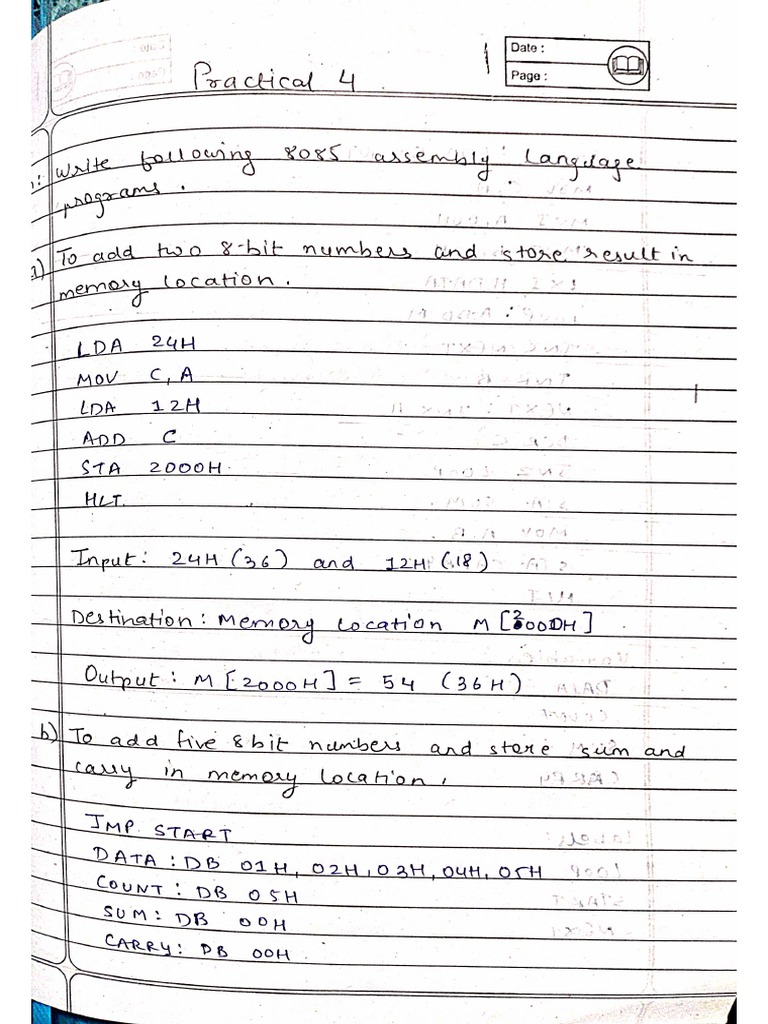 Practical 4
Date :
Page :
Write following 8085 assembly language
programs.
a) To add two 8-bit numbers and store result in
memory location.
LDA 24H
MOV C, A
LDA 12H
ADD C
STA 2000H
HLT
Input: 24H (36) and 12H (18)
Destination: Memory location M [2000H]
Output: M [2000H] = 54 (36H)
b) To add five 8bit numbers and store sum and
carry in memory location.
JMP START
DATA : DB 01H, 02H, 03H, 04H, 05H
COUNT: DB 05H
SUM: DB 00H
CARRY: DB 00H